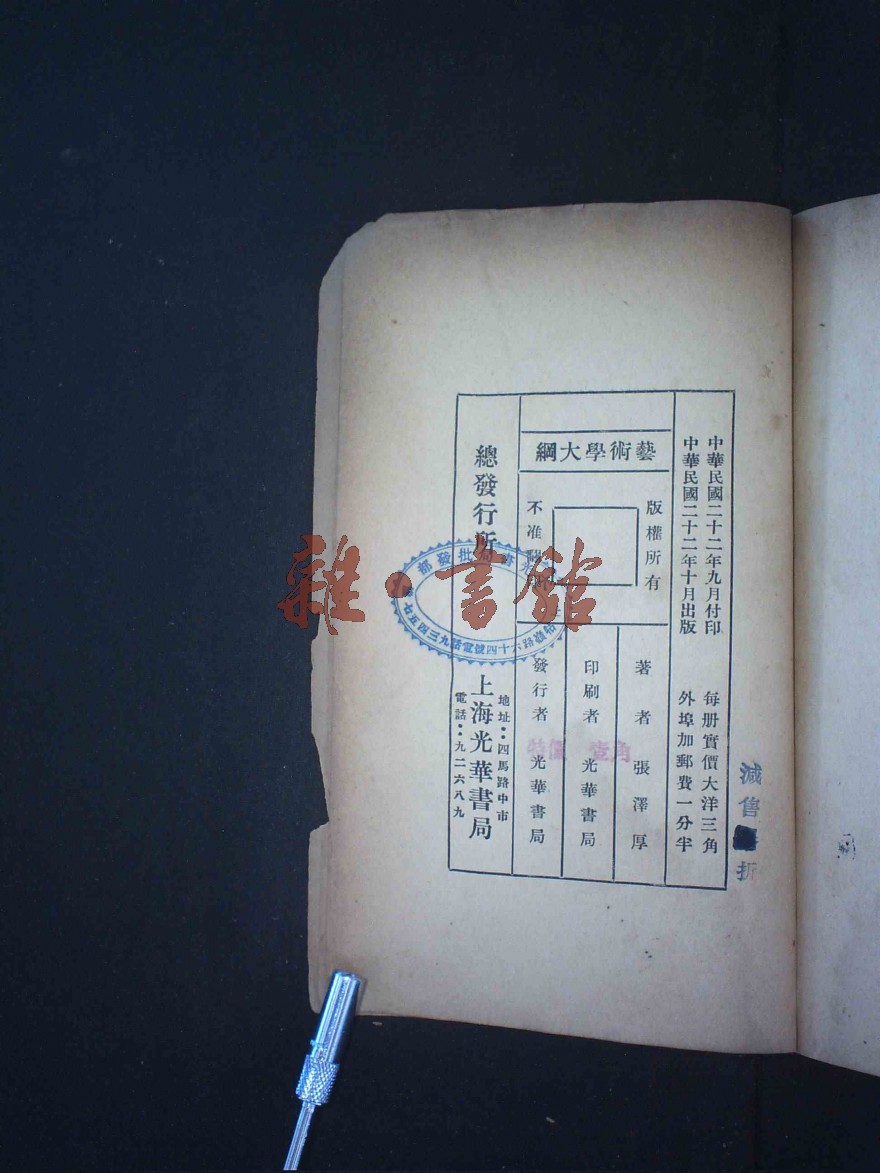 中華民國二十二年九月付印
中華民國二十二年十月出版
每册實價大洋三角
外埠加郵費一分半
藝術學大綱
版權所有
不准
著者 張澤厚
印刷者 光華書局
發行者 光華書局
總發行所
地址：四馬路中市
上海光華書局
電話：九二六八九
減售
折
特價 壹角
批發部
路六十四號電話九三四五七
雜·書館